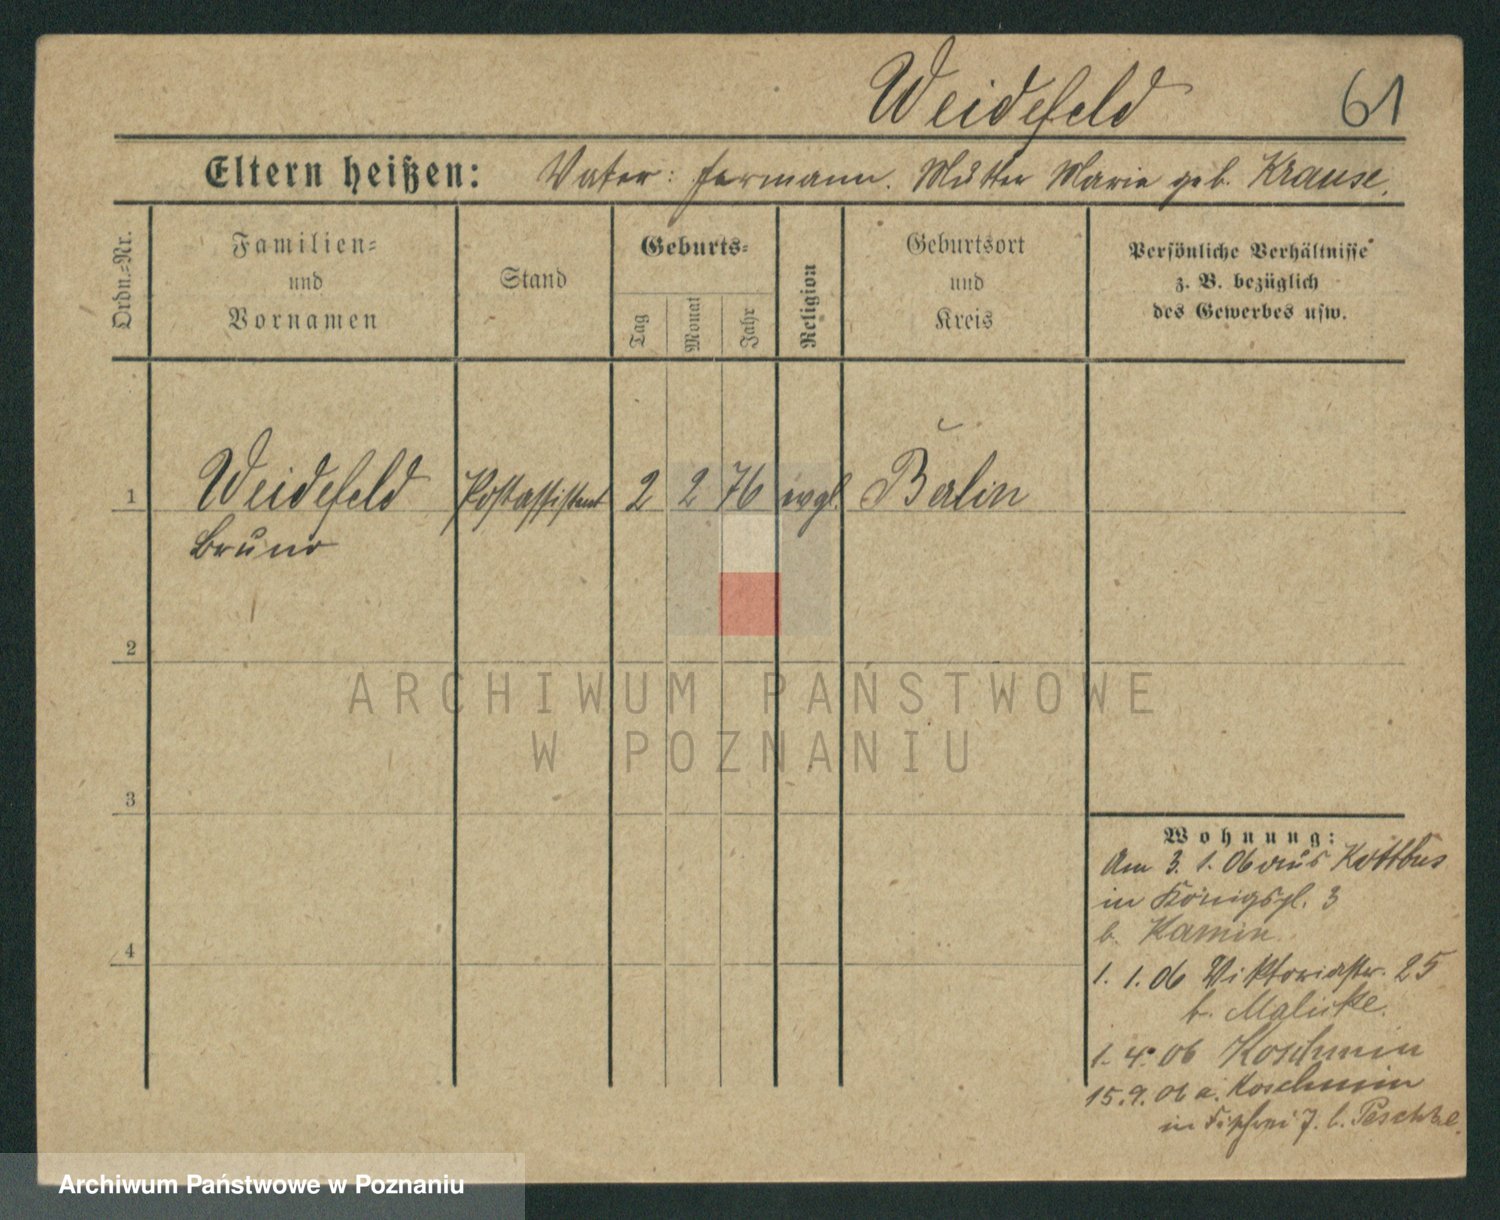 Weidefeld 61
Eltern heißen: Vater: Hermann. Mutter Marie geb. Krause.
Ordn.=Nr.
Familien=
und
Vornamen
Stand
Geburts=
Tag
Monat
Jahr
Religion
Geburtsort
und
Kreis
Persönliche Verhältnisse
z. B. bezüglich
des Gewerbes usw.
1 Weidefeld Postassistent 2 2 76 evgl. Berlin
Bruno
2
3
4
Wohnung:
Am 3. 1. 06 aus Kottbus
in Königspl. 3
b. Kamin
1. 1. 06 Viktoriastr. 25
b. Malicke.
1. 4. 06 Koschmin
15. 9. 06 a. Koschmin
in b. Peschke.
ARCHIWUM PAŃSTWOWE
W POZNANIU
Archiwum Państwowe w Poznaniu